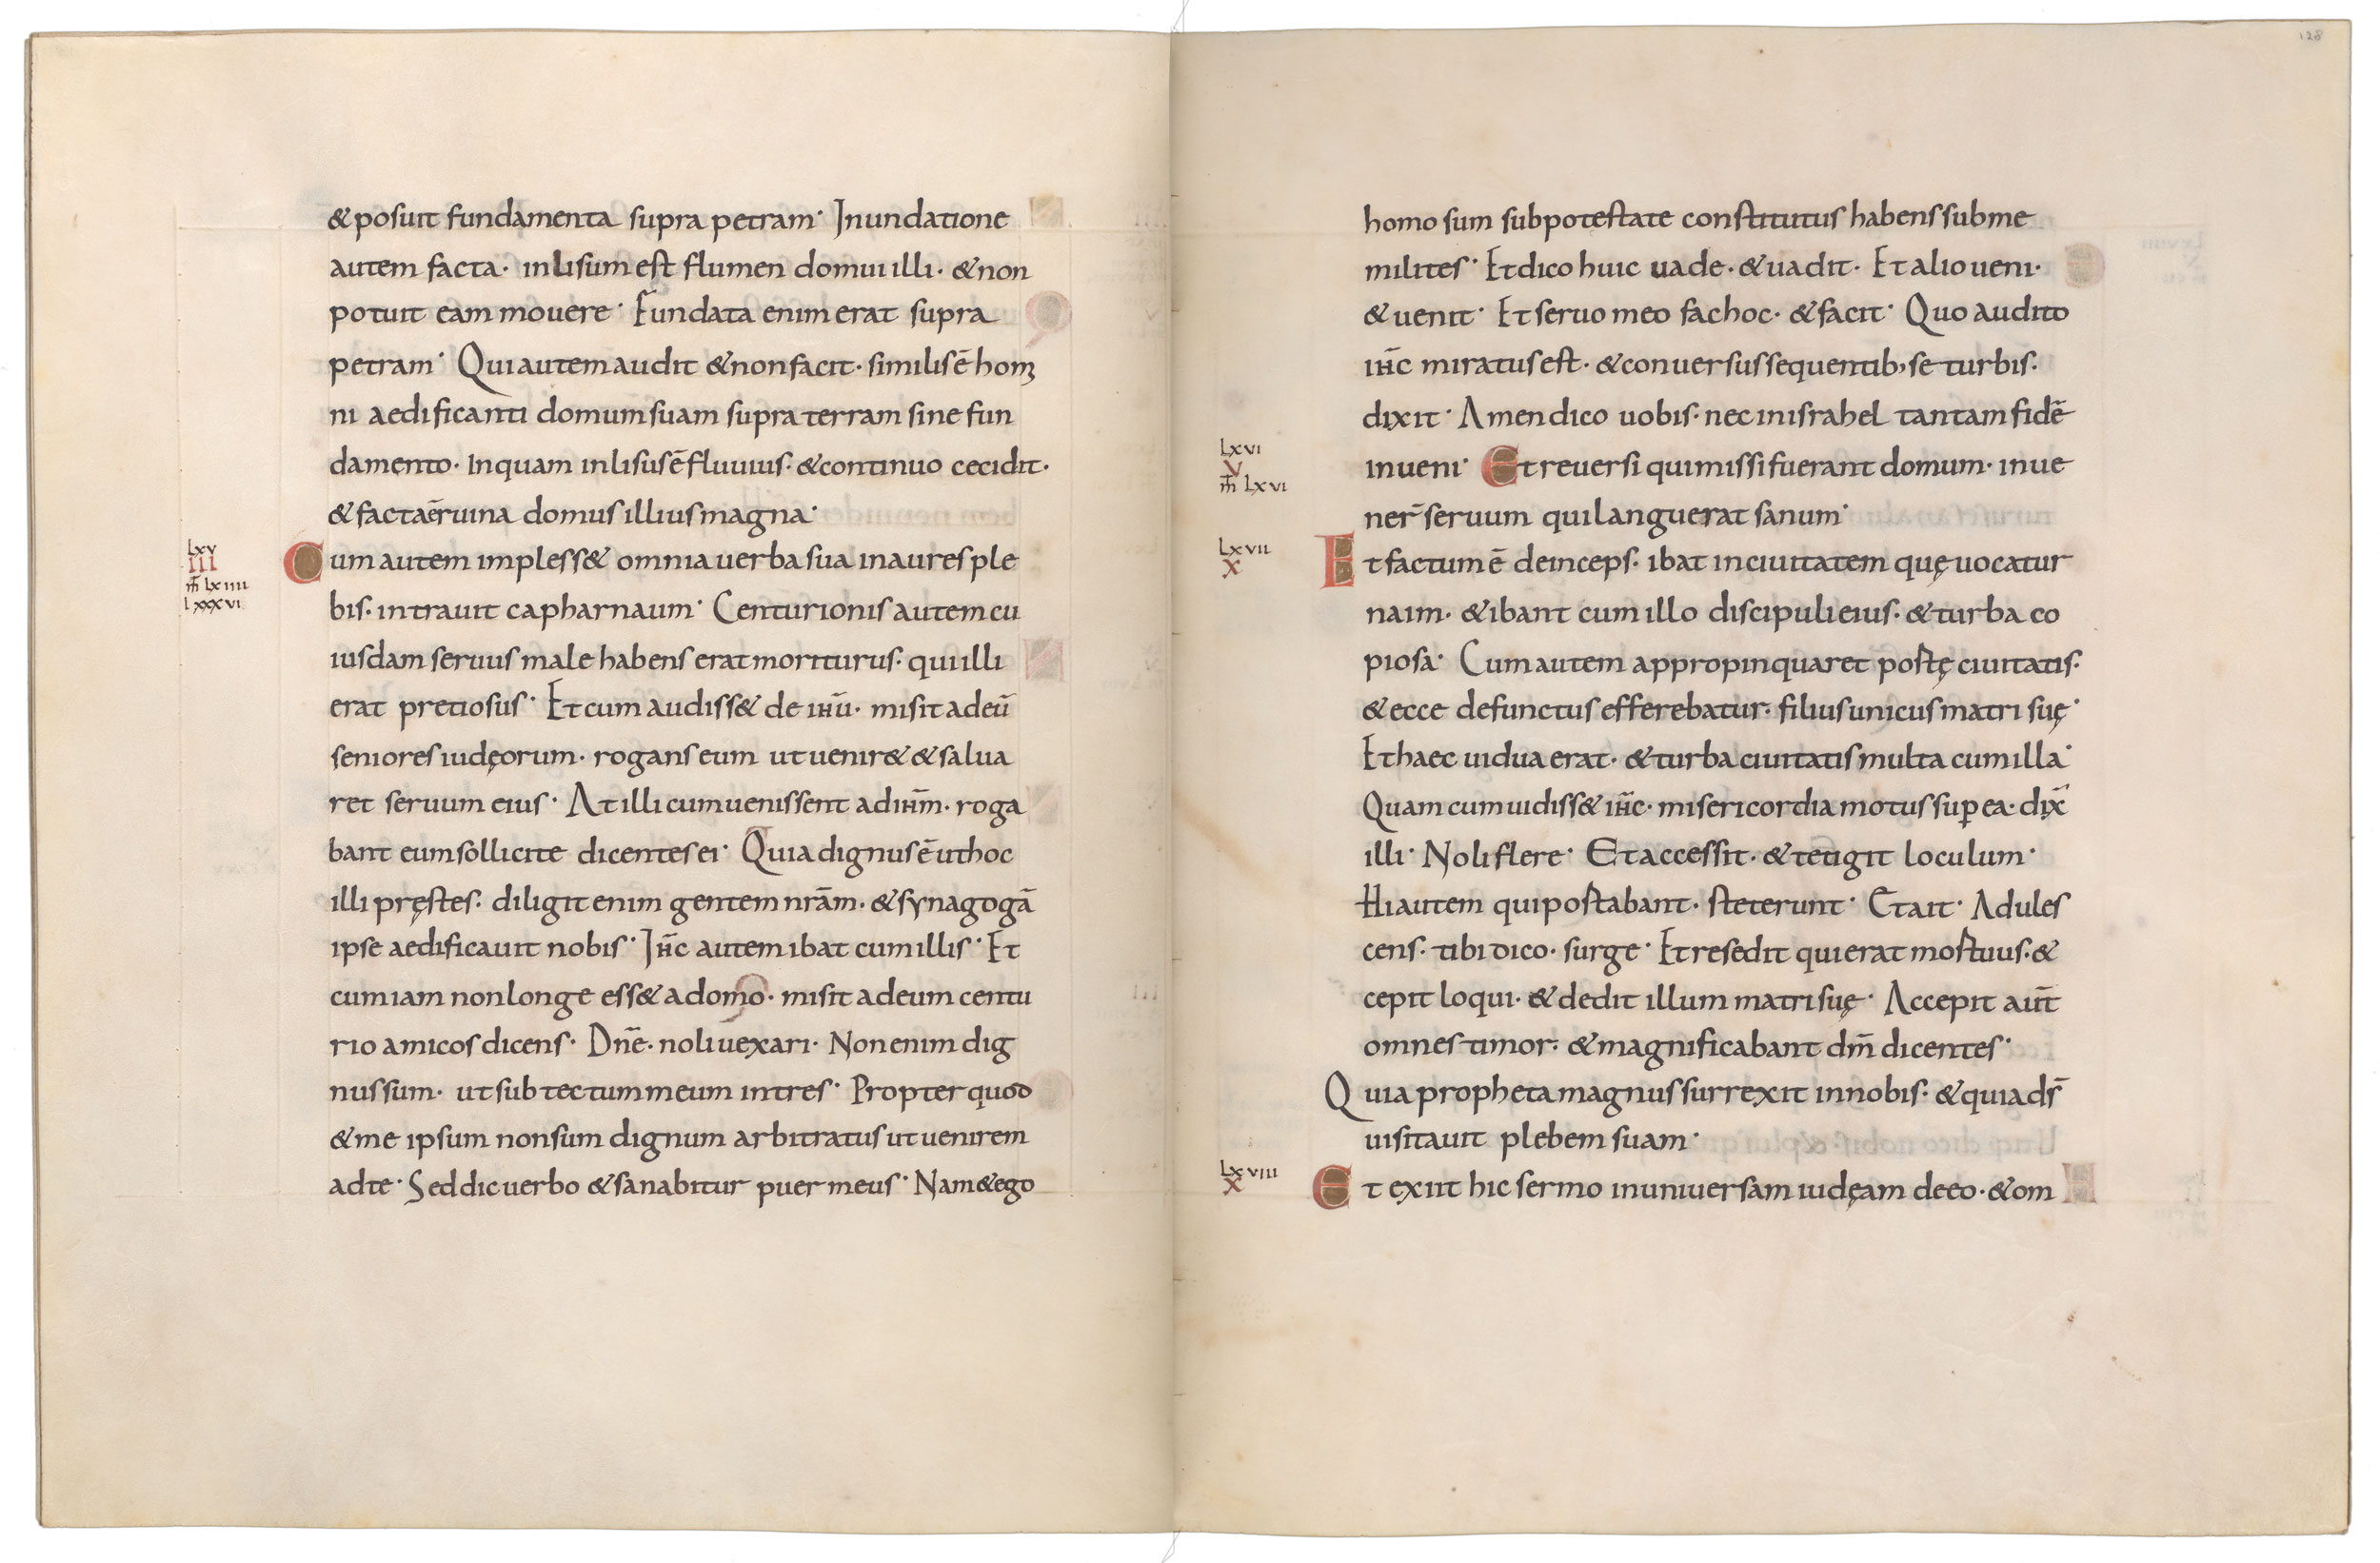 & posuit fundamenta supra petram· Inundatione
autem facta· inlisum est flumen domui illi· & non
potuit eam mouere· Fundata enim erat supra
petram· Qui autem audit & non facit· similis ē homi
ni aedificanti domum suam supra terram sine fun
damento· In quam inlisus ē fluuius· & continuo cecidit·
& facta ē ruina domus illius magna·
lxv
III
m̄ lxiiii
lxxxvi
Cum autem impless& omnia uerba sua in aures ple
bis· intrauit capharnaum· Centurionis autem cu
iusdam seruus male habens erat moriturus· qui illi
erat pretiosus· Et cum audiss& de ihū· misit ad eū
seniores iudęorum· rogans eum ut uenir& & salua
ret seruum eius· At illi cum uenissent ad ihm̄· roga
bant eum sollicite dicentes ei· Quia dignus ē ut hoc
illi pręstes· diligit enim gentem nrām· & synagogā
ipse aedificauit nobis· Ihc̄ autem ibat cum illis· Et
cum iam non longe ess& a domo· misit ad eum centu
rio amicos dicens· Dnē· noli uexari· Non enim dig
nus sum· ut sub tectum meum intres· Propter quod
& me ipsum non sum dignum arbitratus ut uenirem
ad te· Sed dic uerbo & sanabitur puer meus· Nam & ego
128
homo sum sub potestate constitutus habens sub me
milites· Et dico huic uade· & uadit· Et alio ueni·
& uenit· Et seruo meo fac hoc· & facit· Quo audito
ihc̄ miratus est· & conuersus sequentib; se turbis·
dixit· Amen dico uobis· nec in israhel tantam fidē
lxvi
V
m̄ lxvi
inueni· Et reuersi qui missi fuerant domum· inue
ner̄ seruum qui languerat sanum·
lxvii
X
Et factum ē deinceps· ibat in ciuitatem quę uocatur
naim· & ibant cum illo discipuli eius· & turba co
piosa· Cum autem appropinquaret portę ciuitatis·
& ecce defunctus efferebatur· filius unicus matri suę·
Et haec uidua erat· & turba ciuitatis multa cum illa·
Quam cum uidiss& ihc̄· misericordia motus suꝑ ea· dix̄
illi· Noli flere· Et accessit· & tetigit loculum·
Hi autem qui portabant· steterunt· Et ait· Adules
cens· tibi dico· surge· Et resedit qui erat mortuus· &
cepit loqui· & dedit illum matri suę· Accepit aut̄
omnes timor· & magnificabant dm̄ dicentes·
Quia propheta magnus surrexit in nobis· & quia ds̄
uisitauit plebem suam·
lxviii
X
Et exiit hic sermo in uniuersam iudęam de eo· & om